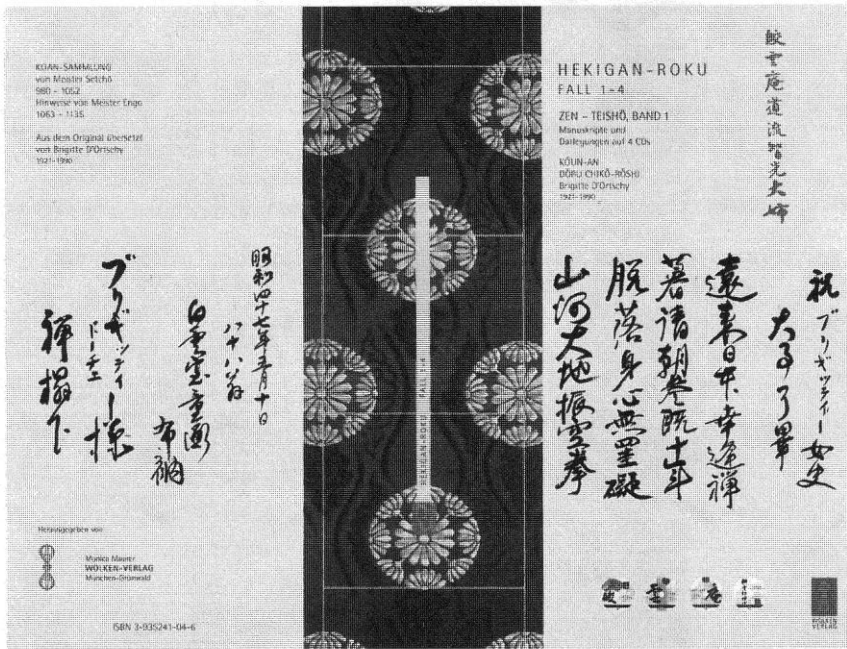 KOAN-SAMMLUNG
von Meister Setchō
980 – 1052
Hinweise von Meister Engo
1063 – 1135
Aus dem Original übersetzt
von Brigitte D'Ortschy
1921–1990
昭和四十七年五月十日
八十八翁
白雲室量衡
布衲
ブリギッティー様
ドーチエ
禅榻下
Herausgegeben von
Monica Maurer
WOLKEN-VERLAG
München-Grünwald
ISBN 3-935241-04-6
HEKIGAN-ROKU FALL 1-4
HEKIGAN-ROKU
FALL 1-4
ZEN – TEISHŌ, BAND 1
Manuskripte und
Darlegungen auf 4 CDs
KŌUN-AN
DŌRU CHIKŌ-RŌSHI
Brigitte D'Ortschy
1921–1990
皎雲庵道流智光大姉
祝ブリギッティー女史
大事了畢
遠来日本幸逢禅
暮請朝参既十年
脱落身心無罣礙
山河大地振空拳
皎雲庵
WOLKEN
VERLAG